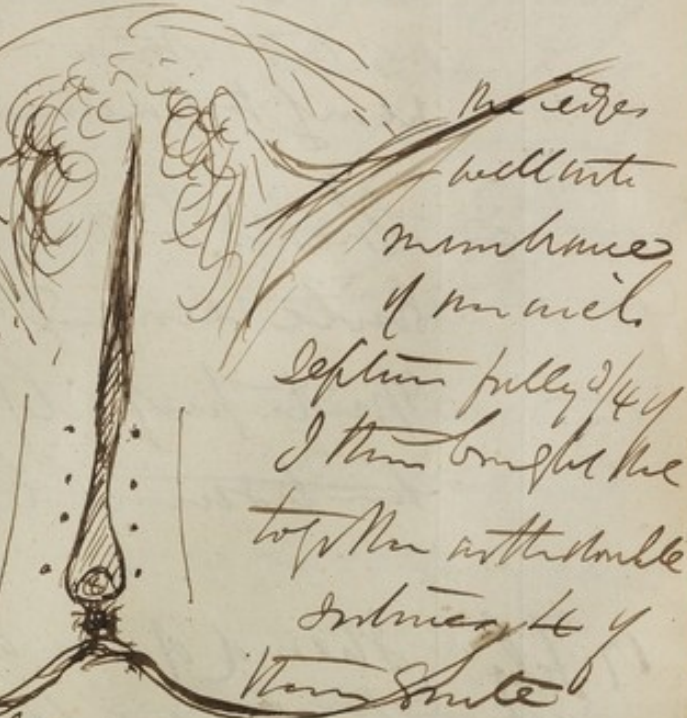 the edges
well into
membrane
of
septum fully 3/4 of
I then brought the
together with double
sutures, 4 of
them